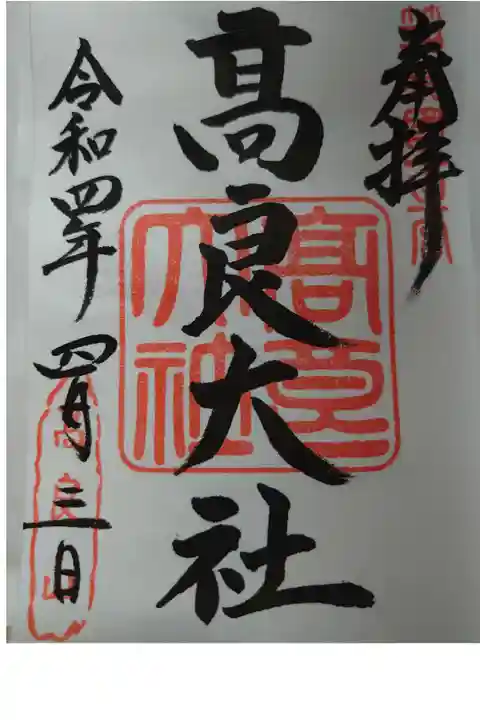 奉拝
髙良大社
令和四年四月三日
髙良大社
高良山